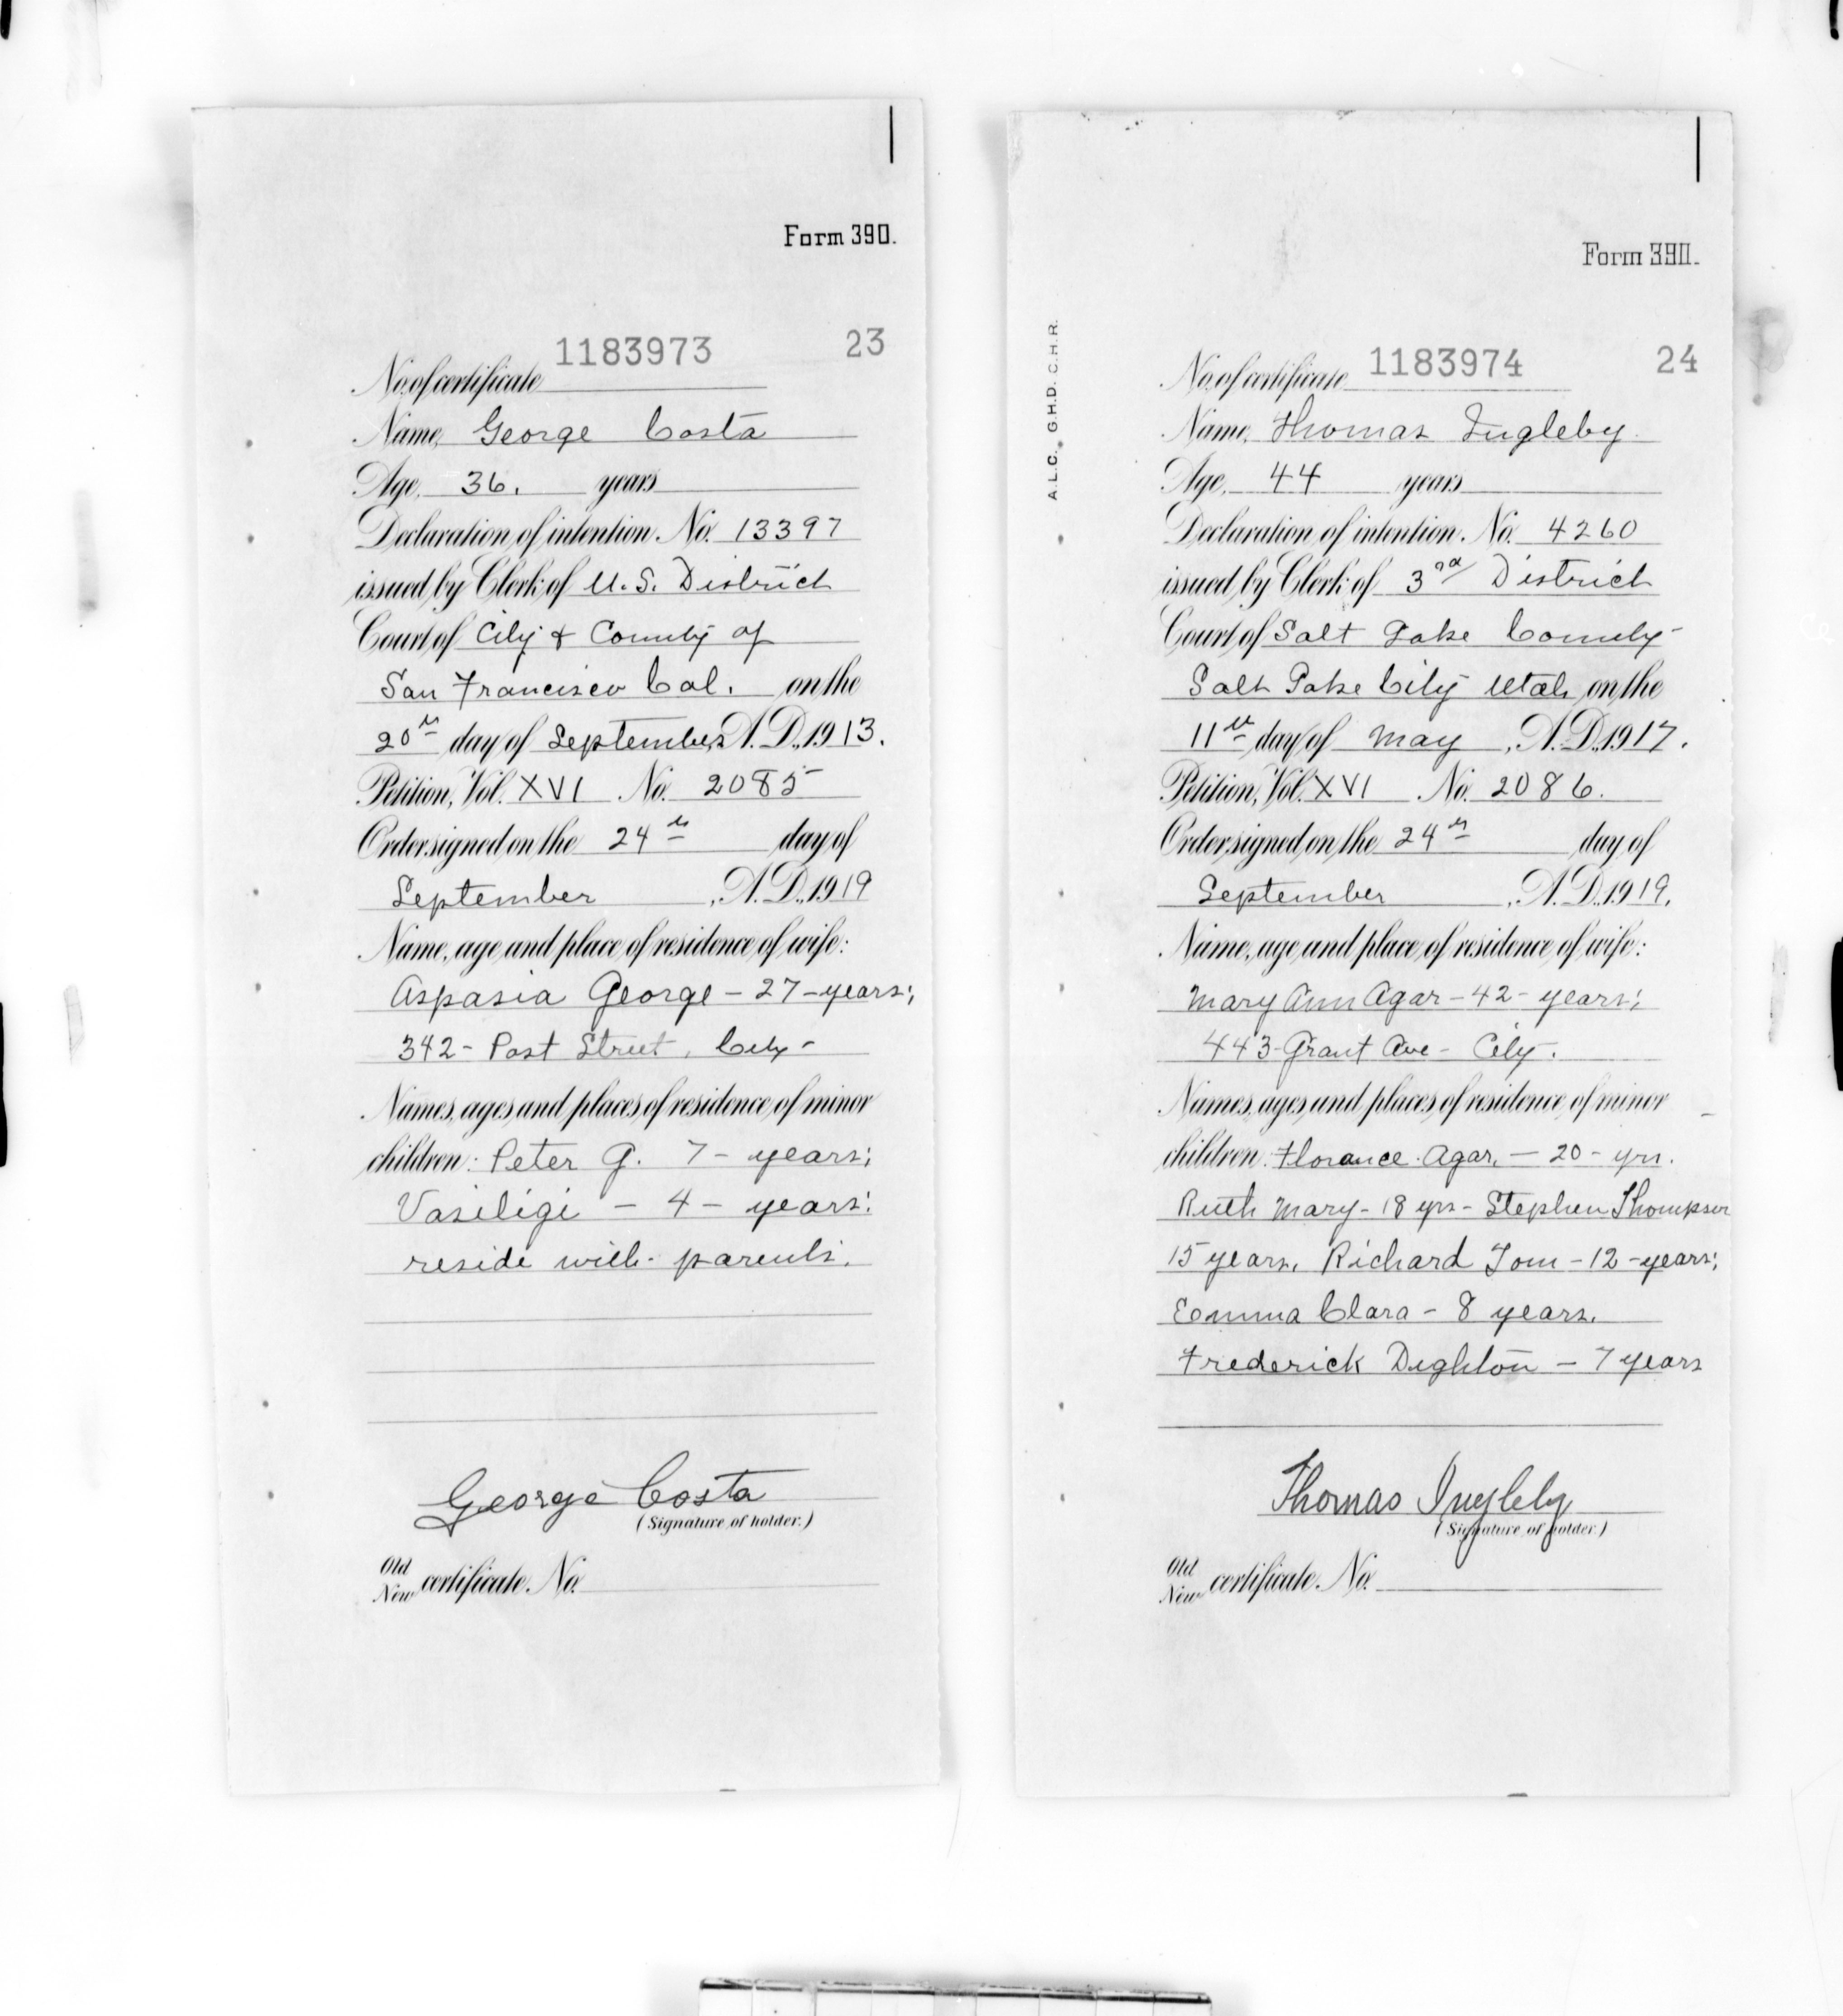 Form 390.
1183973 23
No. of certificate
Name, George Costa
Age, 36. years
Declaration of intention. No. 13397
issued by Clerk of U.S. District
Court of City & County of
San Francisco Cal. on the
20th day of September, A.D., 1913.
Petition, Vol. XVI No. 2085
Order signed on the 24th day of
September, A.D., 1919
Name, age and place of residence of wife:
Aspasia George - 27 - years;
342 - Post Street, City -
Names, ages and places of residence of minor
children: Peter G. 7 - years;
Vasiligi - 4 - years:
reside with parents.
George Costa
(Signature of holder.)
Old
New certificate No.
Form 390.
A.L.C., G.H.D. C.H.R.
1183974 24
No. of certificate
Name, Thomas Ingleby
Age, 44 years
Declaration of intention. No. 4260
issued by Clerk of 3rd District
Court of Salt Lake County -
Salt Lake City Utah, on the
11th day of May, A.D., 1917.
Petition, Vol. XVI No. 2086.
Order signed on the 24th day of
September, A.D., 1919.
Name, age and place of residence of wife:
Mary Ann Agar - 42 - years;
443 - Grant Ave - City.
Names, ages and places of residence of minor
children: Florance Agar, - 20 - yrs.
Ruth Mary - 18 yrs - Stephen Thompson
15 years, Richard Tom - 12 - years;
Emma Clara - 8 years.
Frederick Dighton - 7 years
Thomas Ingleby
(Signature of holder.)
Old
New certificate No.